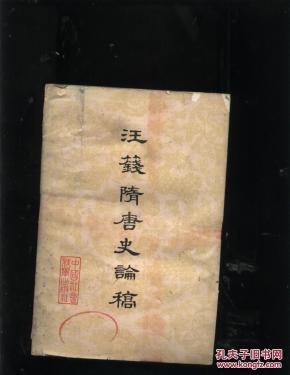 汪籛隋唐史論稿
中國社會
科學出版社
孔夫子旧书网